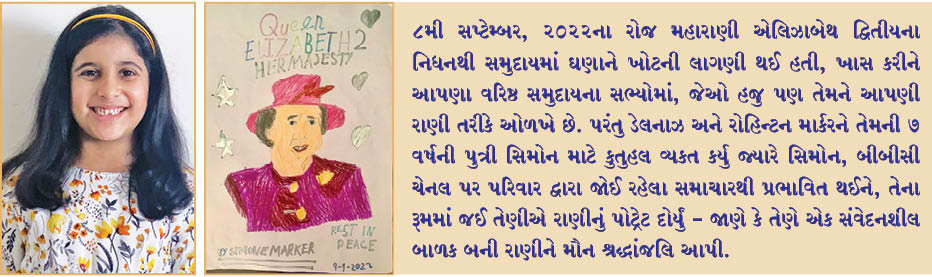 Queen
ELIZABETH 2
HER MAJESTY
REST IN
PEACE
BY SIMONE MARKER
9-9-2022
૮મી સપ્ટેમ્બર, ૨૦૨૨ના રોજ મહારાણી એલિઝાબેથ દ્વિતીયના
નિધનથી સમુદાયમાં ઘણાને ખોટની લાગણી થઈ હતી, ખાસ કરીને
આપણા વરિષ્ઠ સમુદાયના સભ્યોમાં, જેઓ હજુ પણ તેમને આપણી
રાણી તરીકે ઓળખે છે. પરંતુ ડેલનાઝ અને રોહિન્ટન માર્કરને તેમની ૭
વર્ષની પુત્રી સિમોન માટે કુતુહલ વ્યકત કર્યુ જ્યારે સિમોન, બીબીસી
ચેનલ પર પરિવાર દ્વારા જોઈ રહેલા સમાચારથી પ્રભાવિત થઈને, તેના
રૂમમાં જઈ તેણીએ રાણીનું પોટ્રેટ દોર્યું – જાણે કે તેણે એક સંવેદનશીલ
બાળક બની રાણીને મૌન શ્રદ્ધાંજલિ આપી.